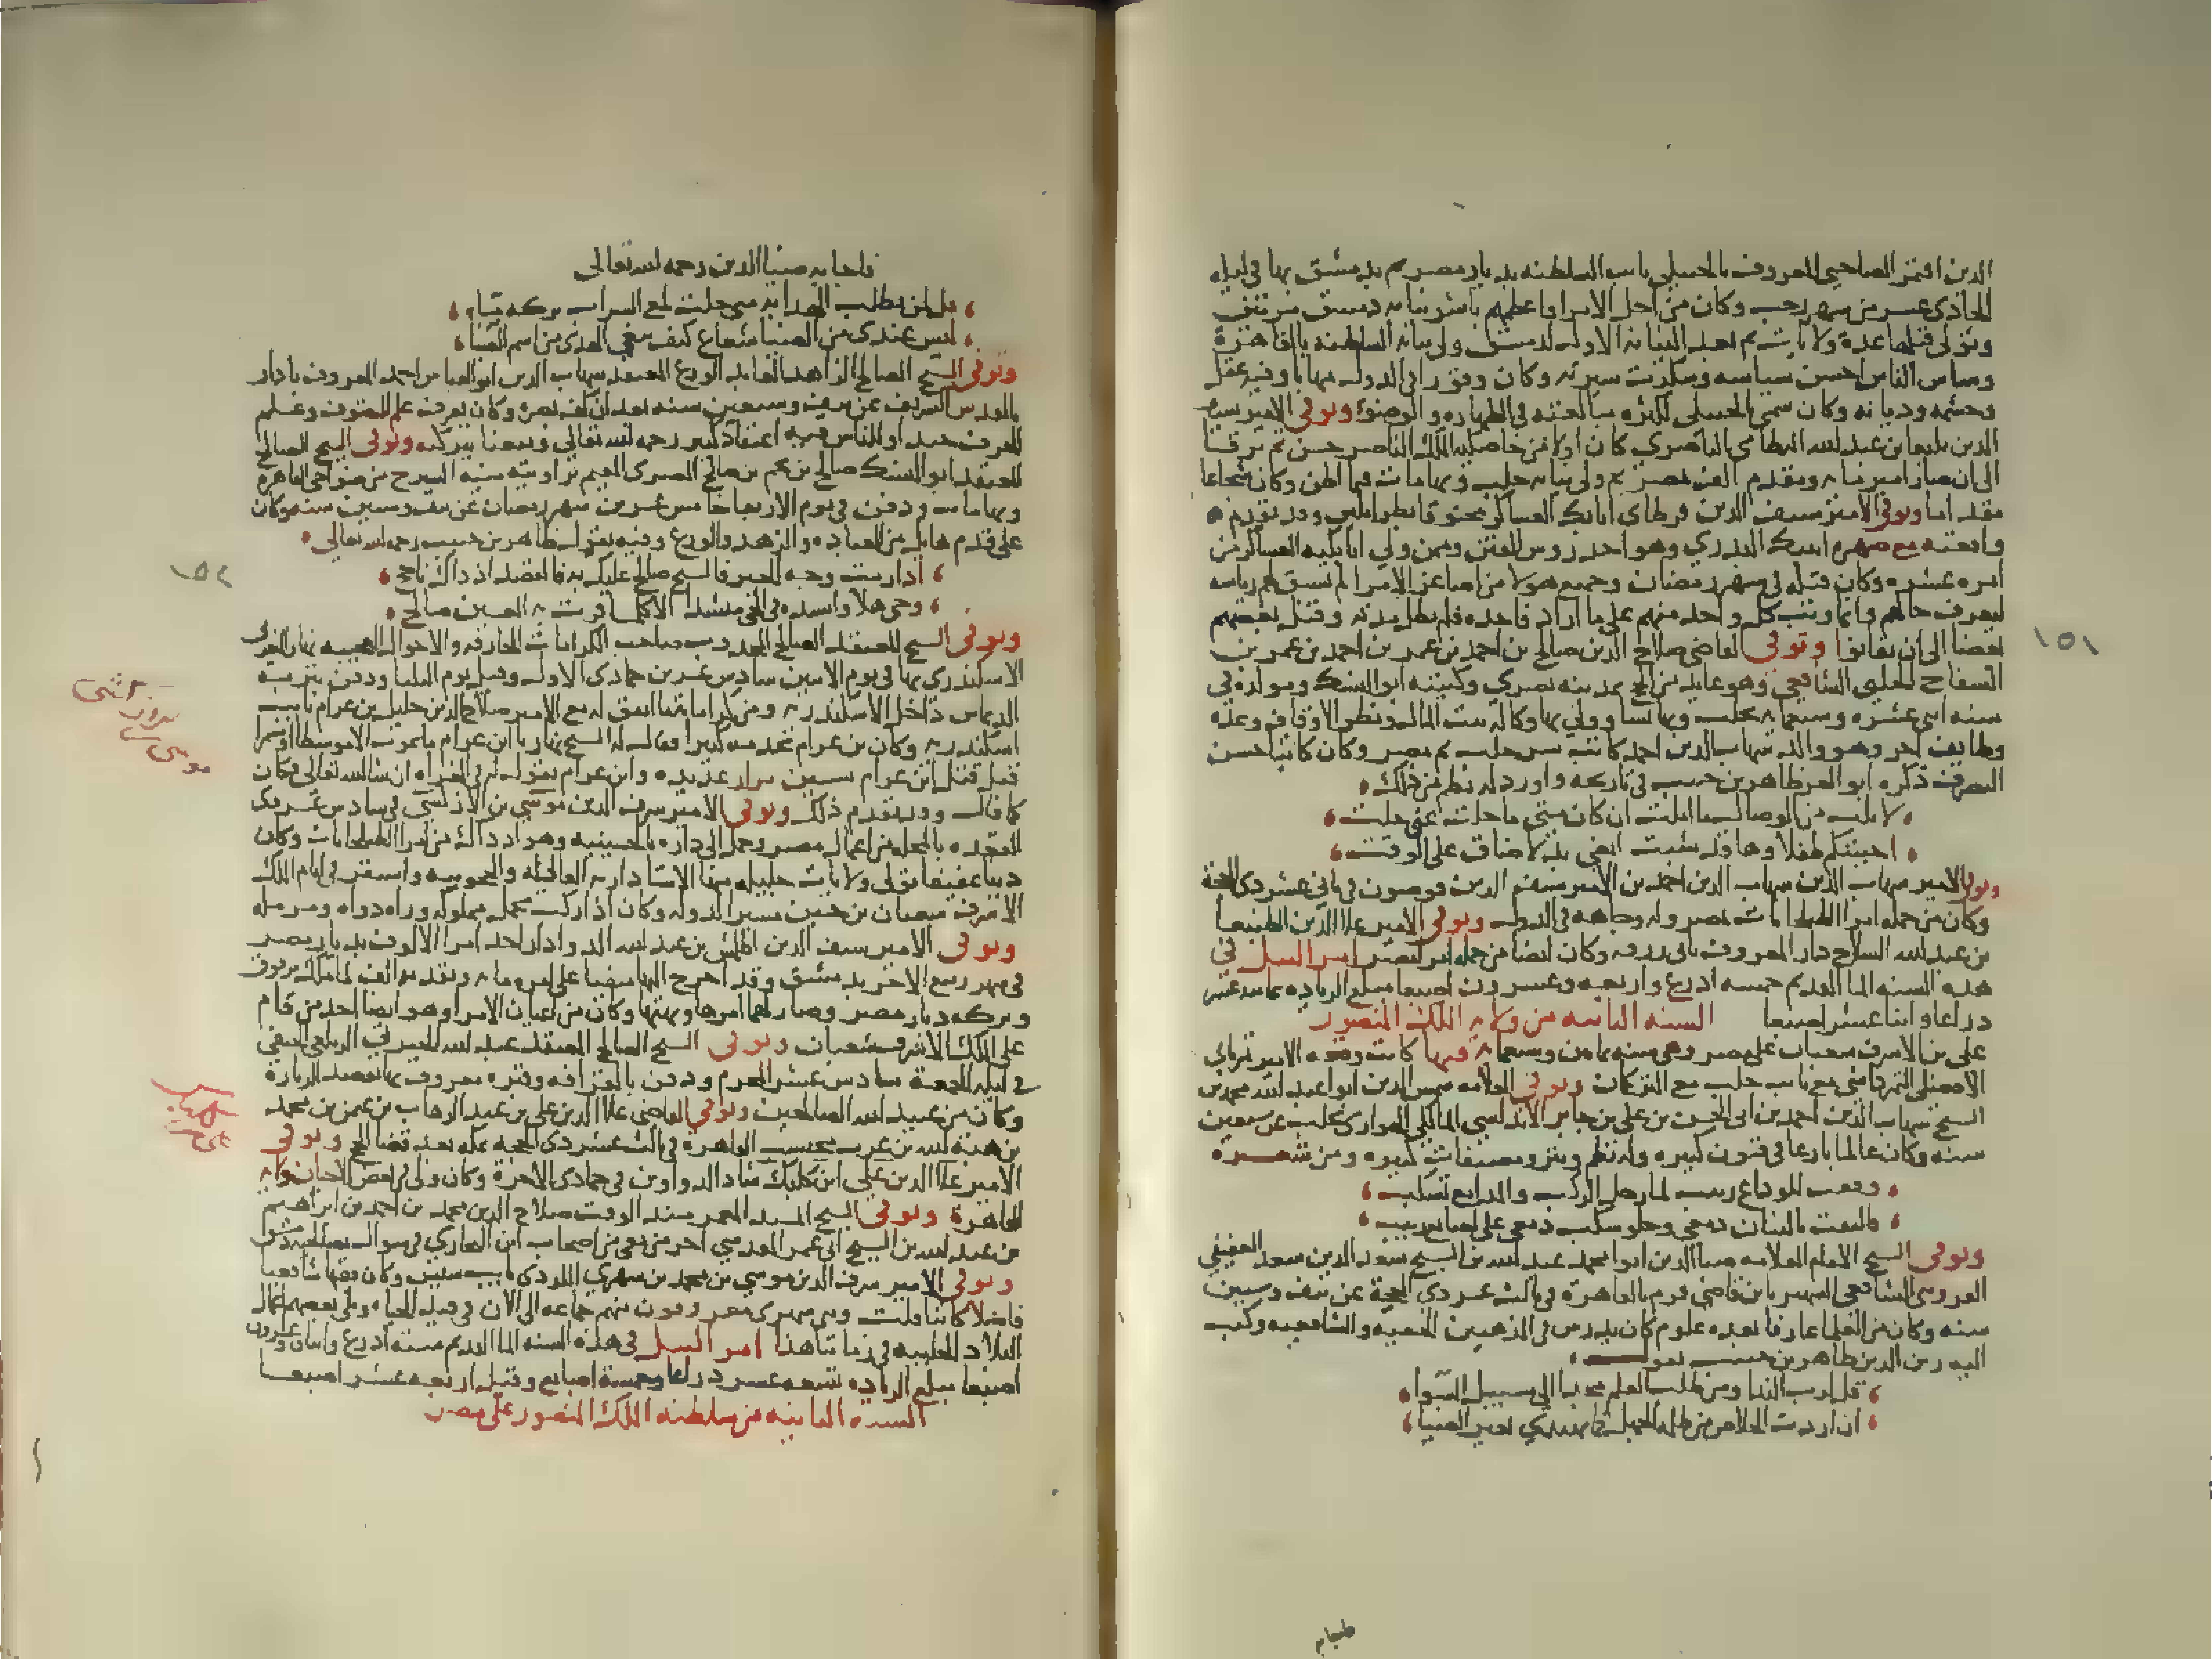 الدين اقتمر الصاحبي المعروف بالحنبلي نايب السلطنه بديار مصر ثم بدمشق بها في ليله
الحادي عشر من شهر رجب وكان من اجل الامرا واعظمهم باشر نيابه دمشق مرتين
وتولى قبلها عدة ولايات ثم بعد النيابه الاولى لدمشق ولي نيابه السلطنه بالقاهرة
وساس الناس احسن سياسه وشكرت سيرته وكان وقورا في الدوله مهابا وفيه عقل
وحشمه وديانه وكان سمي بالحنبلي لكثرة مبالغته في الطهاره والوضوء وتوفى الامير سيف
الدين يلبغا بن عبد الله النظامي الناصري كان اولا من خاصكيه الملك الناصر حسن ثم ترقا
الى ان صار امير مايه ومقدم الف بمصر ثم ولي نيابه حلب وبها مات فيما اظن وكان شجاعا
مقداما وتوفى الامير سيف الدين قرطاي اتابك العساكر مخنوقا بطرابلس وقد تقدم
واقعته مع صهره اينبك البدري وهو احد روس الفتن وممن ولي اتابكيه العساكر من
امره عشره وكان قتله في شهر رمضان وجميع هولا من اصاغر الامرا لم تسبق لهم رياسه
ليعرف حالهم وانما وثب كل واحد منهم على ما اراد فاخده فلم تطل مدته وقتل بعضهم
بعضا الى ان تفانوا وتوفى القاضي صلاح الدين صالح بن احمد بن عمر بن احمد بن عمر بن
السفاح الحلبي الشافعي وهو عايد من الحج بمدينه بصري وكنيته ابو النسك ومولده في
سنه اثني عشره وسبعمايه بحلب وبها نشا وولي بها وكاله بيت المال ونظر الاوقاف وعده
وظايف اخر وهو والد شهاب الدين احمد كاتب سر حلب ثم مصر وكان كاتبا حسن
التصرف ذكره ابو العز طاهر بن حبيب في تاريخه واورد له نظم من ذلك
لا نلت من الوصال ما املت ان كان متى ما حلت عني حلت
احببتكم طفلا وها قد شبت ابغي بدلا ضاق علي الوقت
وتوفى الامير شهاب الدين احمد بن الامير سيف الدين قوصون في ثاني عشر دي الحجة
وكان من جمله امرا الطبلخانات بمصر وله وجاهه في الدوله وتوفى الامير علا الدين الطنبغا
بن عبد الله السلاح دار المعروف بابي درقه وكان ايضا من جمله امرا مصر امر النيل في
هذه السنه الما القديم خمسه ادرع واربعه وعشرون اصبعا مبلغ الزياده ثمانيه عشر
دراعا واثنا عشر اصبعا السنه الثانيه من ولايه الملك المنصور
علي بن الاشرف شعبان على مصر وهي سنه ثمانين وسبعمايه فيها كانت وقعه الامير تمرباي
الافضلي التمرداشي مع نايب حلب مع التركمان وتوفى العلامه شمس الدين ابو عبد الله محمد بن
الشيخ شهاب الدين احمد بن ابي الحسن بن علي بن جابر الاندلسي المالكي الهواري بحلب عن سبعين
سنه وكان عالما بارعا في فنون كثيره وله نظم ونثر ومصنفات كثيره ومن شعره
وقفت للوداع زينب لما رحل الركب والمدامع تسكب
فالتقت بالبنان دمعي وحلو سكب دمعي على اصابع زينب
وتوفى الشيخ الامام العلامه ضيا الدين ابو محمد عبد الله بن الشيخ سعد الدين سعد العفيفي
القزويني الشافعي الشهير بابن قاضي قرم بالقاهرة في ثالث عشر دي الحجة عن نيف وستين
سنه وكان من العلما عارفا بعده علوم كان يدرس في المذهبين الحنفيه والشافعيه وكتب
اليه زين الدين طاهر بن حبيب يقول
قل لرب الندا ومن طلب العلم مجدا الى سبيل السوا
ان اردت الخلاص من ظلمة الجهل فما تهتدي بغير الضيا
طهام
١٥١
فاجابه ضيا الدين رحمه الله تعالى
قل لمن يطلب الهدايه مني خلت لمع السراب بركه ماء
ليس عندي من الضيا شعاع كيف تبغي الهدى من اسم الضياء
وتوفى الشيخ الصالح الزاهد العابد الورع المعتقد شهاب الدين ابو العباس احمد المعروف بادار
بالقدس الشريف عن نيف وسبعين سنه بعد ان كف بصره وكان يعرف علم التصوف وعلم
الحرف جيدا وللناس فيه اعتقاد كبير رحمه الله تعالى ونفعنا ببركته وتوفى الشيخ الصالح
المعتقد ابو النسك صالح بن نجم بن صالح المصري المقيم بزاويته بمنيه السيرج من ضواحي القاهرة
وبها مات ودفن في يوم الاربعا خامس عشرين شهر رمضان عن نيف وستين سنه وكان
على قدم هايل من العباده والزهد والورع وفيه يقول طاهر بن حبيب رحمه الله تعالى
ادا رمت وجه الخير فالشيخ صالح عليك به فالقصد اذ ذاك ناجح
وحي هلا وانشده في الحي منشدا الا كل ما قرت به العين صالح
١٥٢
وتوفى الشيخ المعتقد الصالح المجدوب صاحب الكرامات الخارقه والاحوال العجيبه نهار المغربي
الاسكندري بها في يوم الاثنين سادس عشرين جمادى الاولى وقيل يوم الثلثا ودفن بتربه
الديماس داخل الاسكندريه ومن كراماته ما اتفق له مع الامير صلاح الدين خليل بن عرام نايب
اسكندريه وكان بن عرام يخدمه كثيرا فقال له الشيخ نهار يا ابن عرام ما تموت الا موسطا او مسمرا
قبل قتل ابن عرام بسنين مرار عديده وابن عرام يقول له في الغزاه ان شا الله تعالى فكان
كما قال وقد تقدم ذلك وتوفى الامير شرف الدين موسى بن الازكشي في سادس عشر دي
القعده بالمحله من اعمال مصر وحمل الى داره بالحسينيه وهو اد داك من امرا الطبلخانات وكان
دينا عفيفا تولى ولايات جليله منها الاستاداريه العاليه والحجوبيه واستقر في ايام الملك
الاشرف شعبان بن حسين مشير الدوله وكان اذا ركب يحمل مملوكه وراه دواه ومرمله
وتوفى الامير سيف الدين اطلمش بن عبد الله الدوادار احد امرا الالوف بديار مصر
في شهر ربيع الاخر بدمشق وقد اخرج اليها منفيا على امره مايه وتقدمه الف لما ملك برقوق
وبركه ديار مصر وصار لهما امرها ونهيها وكان من اعيان الامرا وهو ايضا احد من قام
على الملك الاشرف شعبان وتوفى الشيخ الصالح المعتقد عبد الله الجبرتي الزيلعي الحنفي
في ليله الجمعة سادس عشر المحرم ودفن بالقرافه وقبره معروف بها يقصد للزيارة
وكان من عبيد الله الصالحين وتوفي القاضي علا الدين علي بن عبد الوهاب بن عمر بن محمد
بن هبة الله بن عرب محتسب القاهرة في ثالث عشر دي الحجة بمكه بعد قضا الحج وتوفى
الامير علا الدين علي ابن كلبك شاد الدواوين في جمادى الاخرة وكان ولي في بعض الاحيان ولايه
القاهرة وتوفى الشيخ المسند المعمر مسند الوقت صلاح الدين محمد بن احمد بن ابراهيم
بن عبد الله بن الشيخ ابي عمر المقدسي اخر من بقي من اصحاب ابن البخاري في شوال بصالحية دمشق
وتوفى الامير شرف الدين موسى بن محمد بن شهري التركماني نايب سيس وكان فقيها شافعيا
فاضلا كاتبا قلت وبنو شهري معروفون منهم جماعه الى الان في قيد الحياه ولي بعضهم اعمال
البلاد الحلبيه في زماننا هذا امر النيل في هذه السنه الما القديم سته ادرع واثنان وعشرون
اصبعا مبلغ الزياده تسعه عشر دراعا وخمسة اصابع وقيل اربعه عشر اصبعا
السنه الثالثه من سلطنه الملك المنصور على مصر